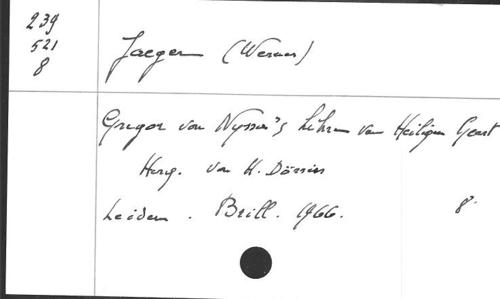 239
521
8
Jaeger (Werner)
Gregor von Nyssa's Lehre vom Heiligen Geist
Hersg. von H. Dörries
Leiden. Brill. 1966. 8°